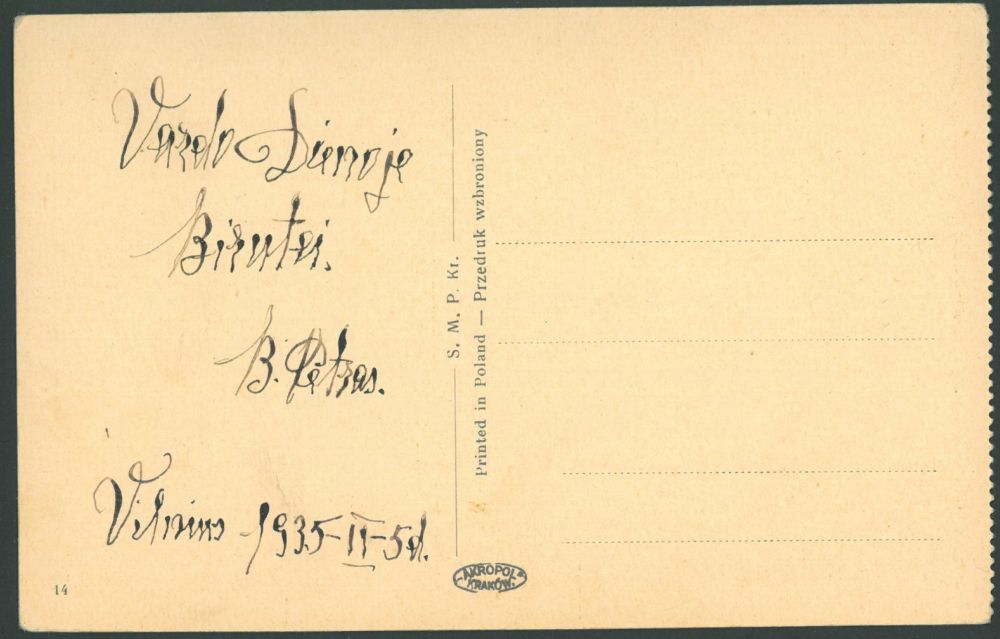 Vardo Dienoje
Birutei.
B. Petras.
Vilnius 1935-II-5d.
14
S. M. P. Kr.
Printed in Poland — Przedruk wzbroniony
"AKROPOL"
KRAKÓW.